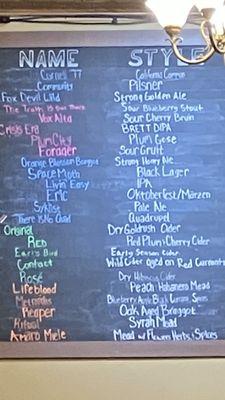 NAME STYLE
Cornell '77 California Common
Community Pilsner
Fox Devil Wild Strong Golden Ale
The Truth Is Out There Sour Blueberry Stout
Vox Alta Sour Cherry Bruin
Crisis Era BRETT DIPA
Plum City Plum Gose
Forager Sour Gruit
Orange Blossom Braggot Strong Honey Ale
Space Moth Black Lager
Livin' Easy IPA
Eric Oktoberfest/Märzen
Syktist Pale Ale
There Is No Quad Quadrupel
Original Dry Goldrush Cider
Red Red Plum & Cherry Cider
Earli's Bird Early Season Cider
Contact Wild Cider aged on Red Currants
Rosé Dry Hibiscus Cider
Lifeblood Peach Habanero Mead
Metropolis Blueberry Apple Black Currant Spices
Reaper Oak Aged Braggot
Ritual Syrah Mead
Amaro Miele Mead w/ Flowers Herbs & Spices